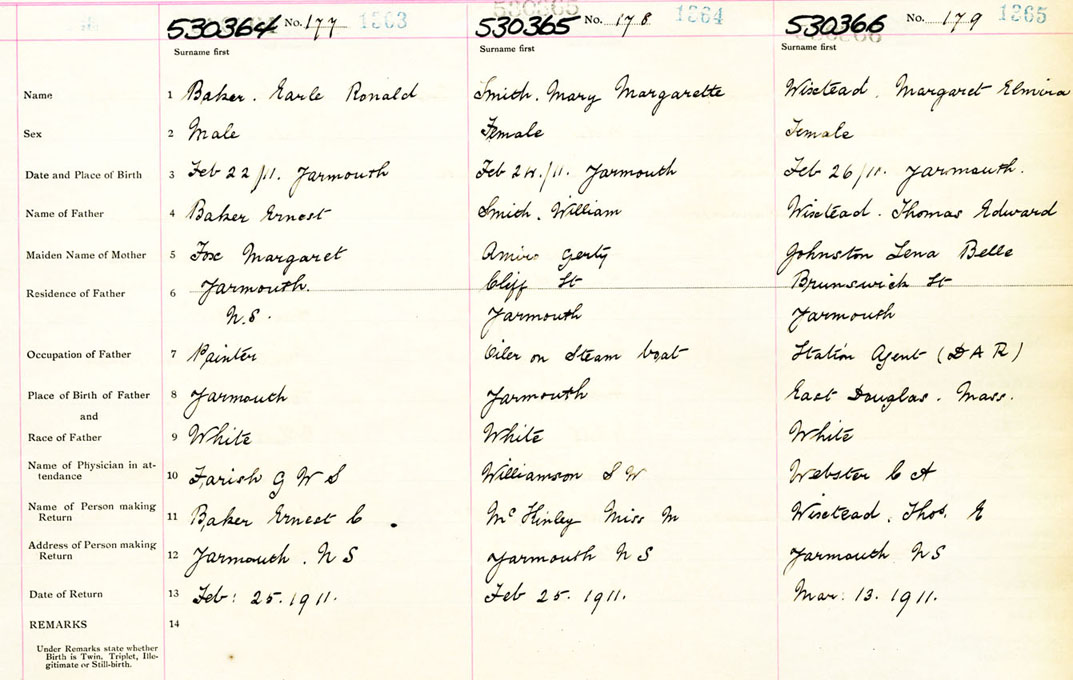 530364 No. 177 1363 530365 No. 178 1364 530366 No. 179 1365
Surname first Surname first Surname first
Name 1 Baker. Earle Ronald Smith. Mary Margarette Wistead. Margaret Elmira
Sex 2 Male Female Female
Date and Place of Birth 3 Feb 22/11. Yarmouth Feb 24./11. Yarmouth Feb 26/11. Yarmouth.
Name of Father 4 Baker Ernest Smith. William Wistead. Thomas Edward
Maiden Name of Mother 5 Fox Margaret Amiro Gerty Johnston Lena Belle
Residence of Father 6 Yarmouth. Cliff St Brunswick St
N.S. Yarmouth Yarmouth
Occupation of Father 7 Painter Oiler on Steam boat Station Agent (D A R)
Place of Birth of Father 8 Yarmouth Yarmouth East Douglas. Mass.
and
Race of Father 9 White White White
Name of Physician in at-
tendance 10 Farish G W S Williamson S W Webster C A
Name of Person making
Return 11 Baker Ernest C. Mc Kinley Miss M Wistead. Thos. E
Address of Person making
Return 12 Yarmouth. N S Yarmouth N S Yarmouth N S
Date of Return 13 Feb: 25. 1911. Feb 25. 1911. Mar: 13. 1911.
REMARKS 14
Under Remarks state whether
Birth is Twin, Triplet, Ille-
gitimate or Still-birth.